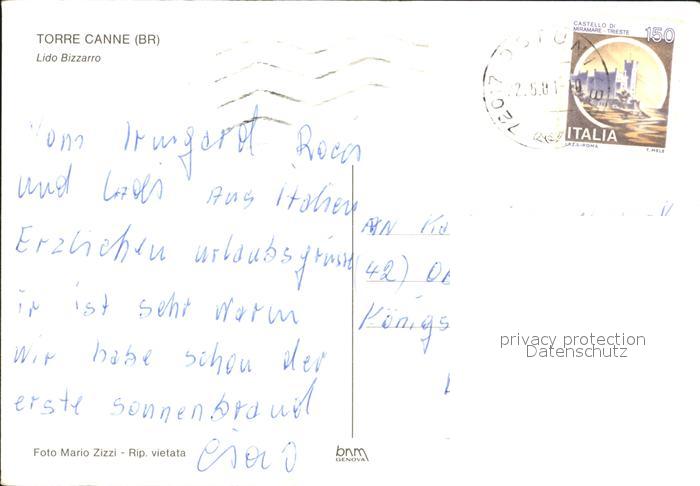 TORRE CANNE (BR)
Lido Bizzarro
CASTELLO DI
MIRAMARE - TRIESTE
150
72017 OSTUNI
ITALIA
I.P.Z.S.-ROMA
T. MELE
Vom Irmgard Rocco
und Ladi Aus Italien
Erzlichen urlaubsgrüsse
ir ist sehr warm
wir habe schon der
erste sonnenbrand
Ciao
AN
42)
Königs
privacy protection
Datenschutz
Foto Mario Zizzi - Rip. vietata
bnm
GENOVA